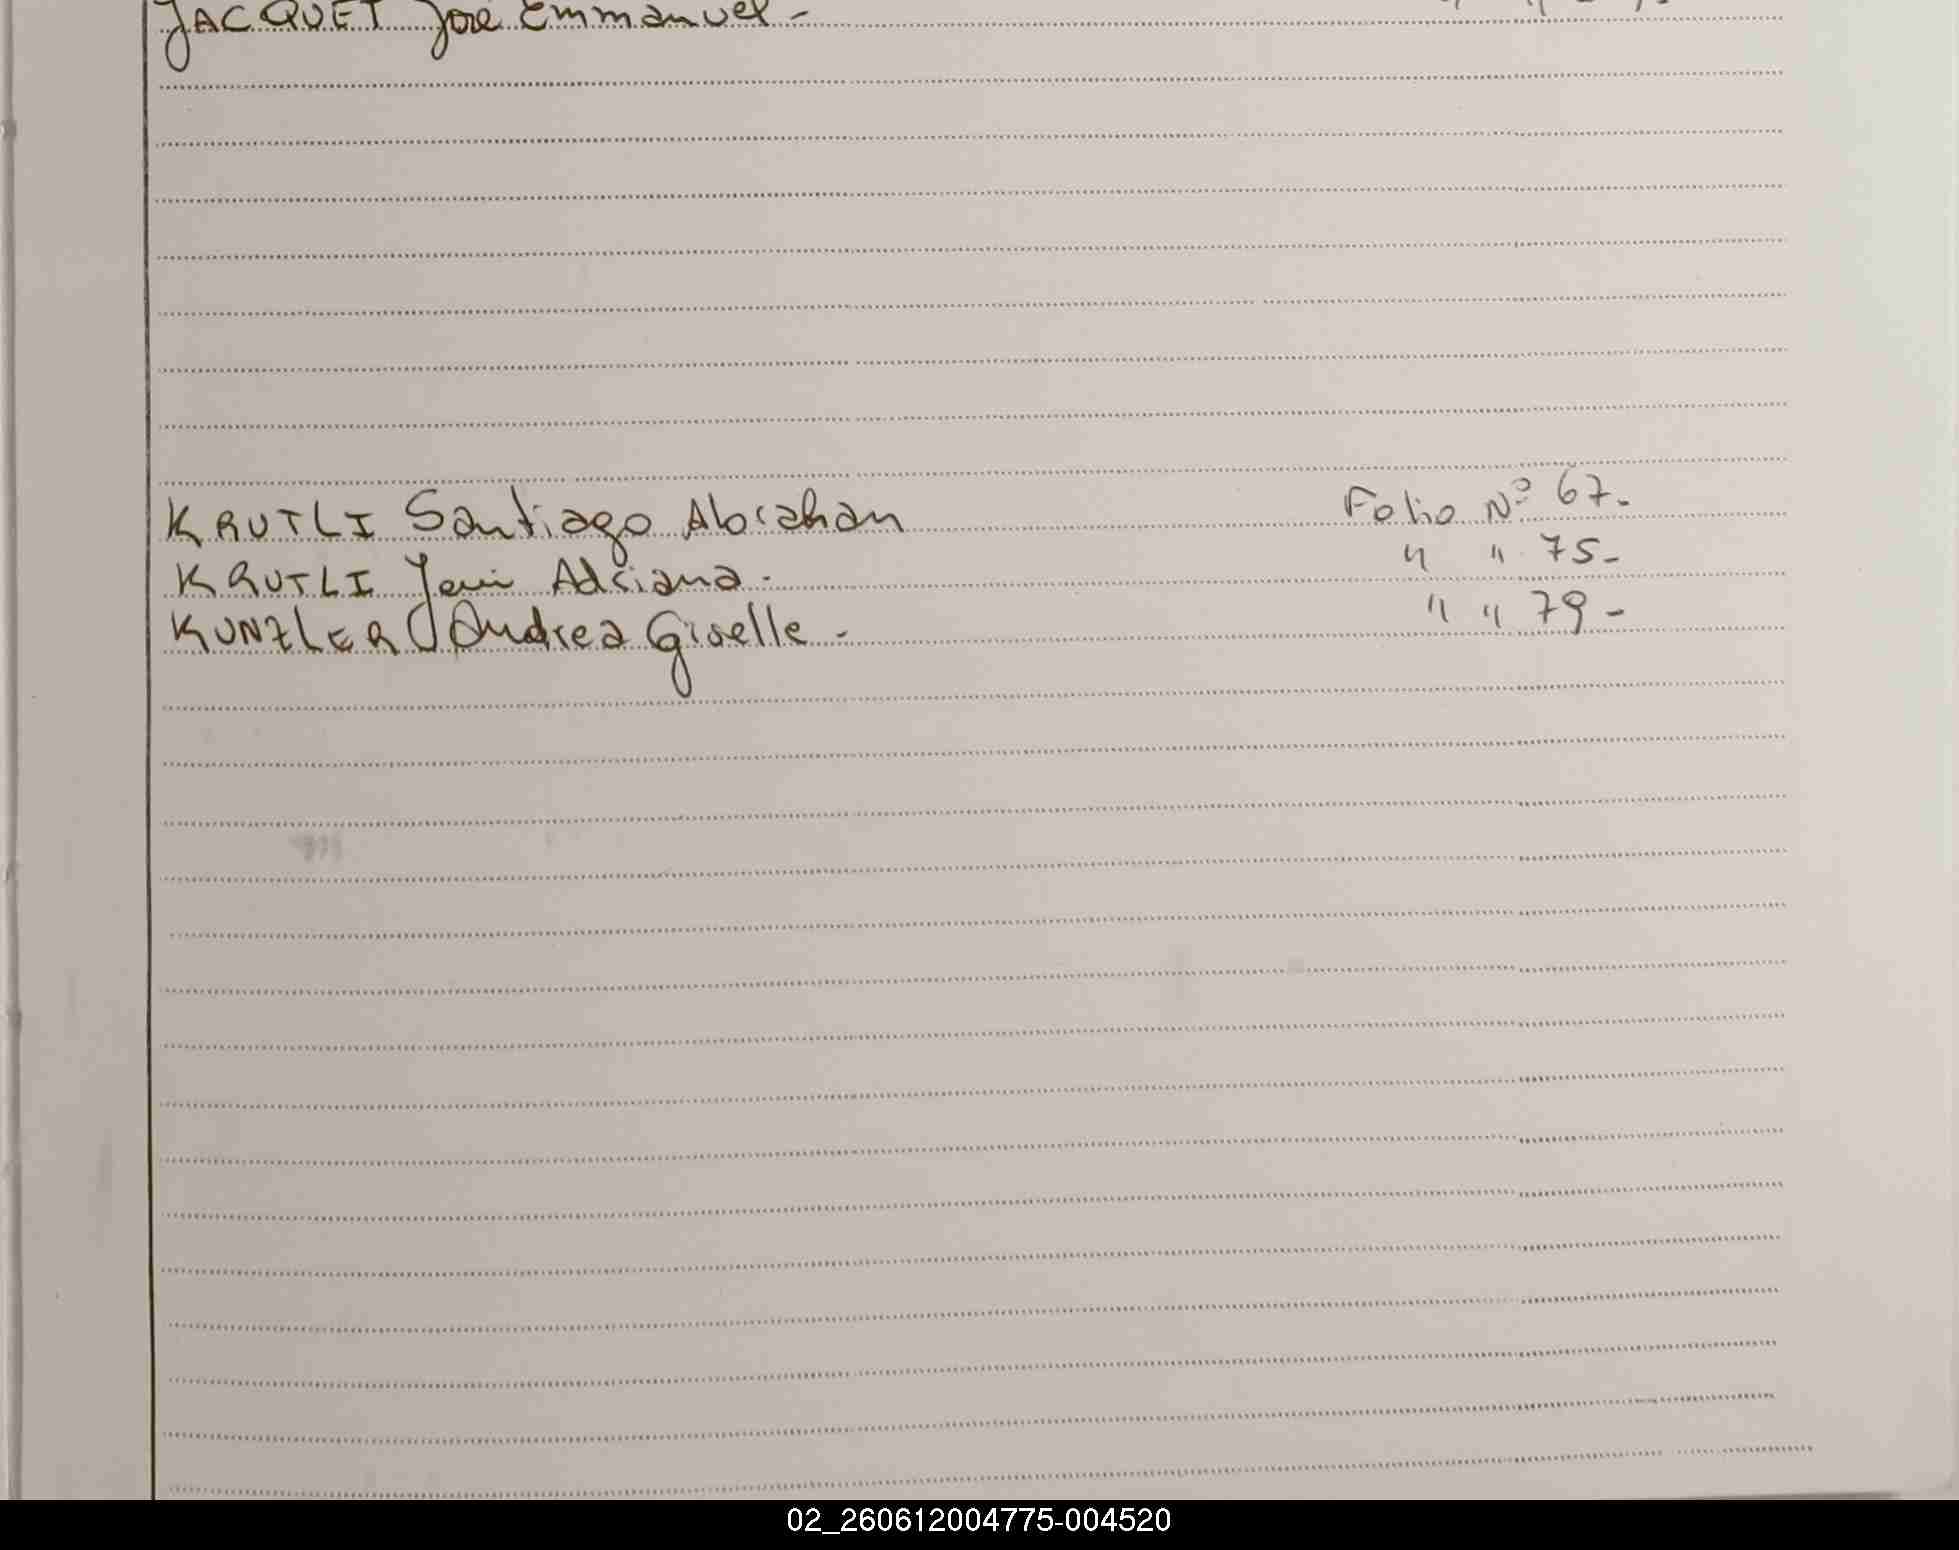 JACQUET José Emmanuel -
KRUTLI Santiago Abrahan Folio Nº 67.-
KRUTLI Adriana.- " " 75-
KUNZLER Andrea Giselle - " " 79-
02_260612004775-004520